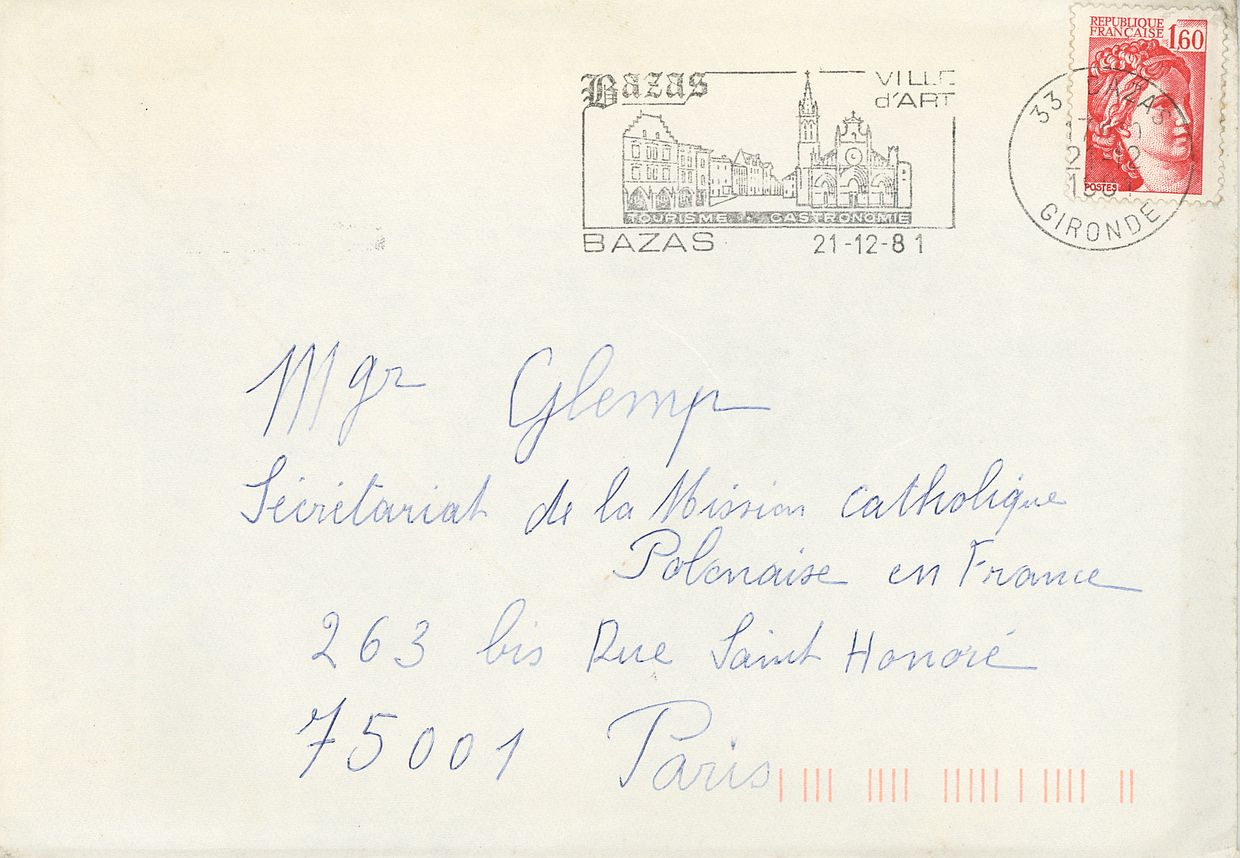 REPUBLIQUE
FRANÇAISE 1,60
POSTES
Bazas
VILLE
d'ART
TOURISME GASTRONOMIE
BAZAS 21-12-81
33 BAZAS
GIRONDE
Mgr Glemp
Sécrétariat de la Mission catholique
Polonaise en France
263 bis Rue Saint Honoré
75001 Paris